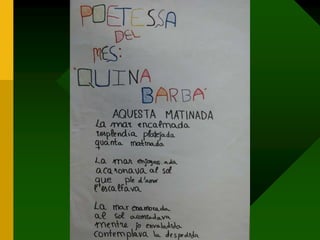 POETESSA
DEL
MES:
"QUINA
BARBA"
AQUESTA MATINADA
La mar encalmada
resplendia platejada
quanta matinada
La mar enjogassada
acaronava al sol
que ple d'amor
l'escalfava
La mar enamorada
al sol acomiadava
mentre jo
contemplava la despedida